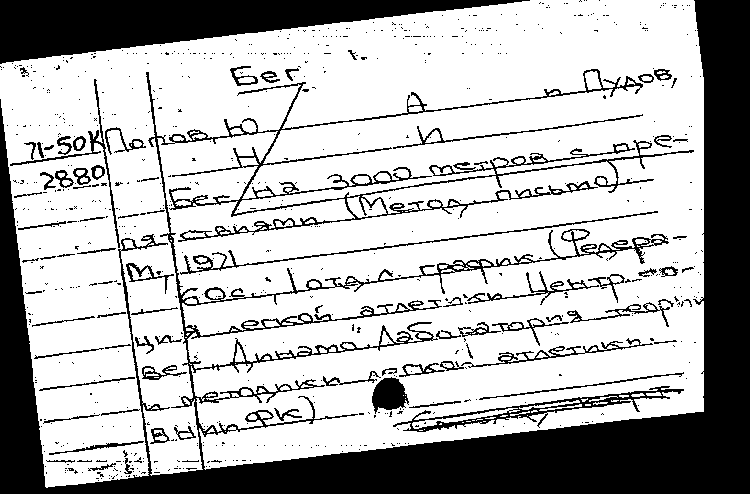 Бег
71-50К Попов, Ю А и Пудов,
2880 Н И
Бег на 3000 метров с пре-
пятствиями (Метод. письмо).
М., 1971
60с.; 1отд.л. график (Федера-
ция легкой атлетики Центр. со-
вет „Динамо". Лаборатория теории
и методики легкой атлетики.
ВНИИФК).